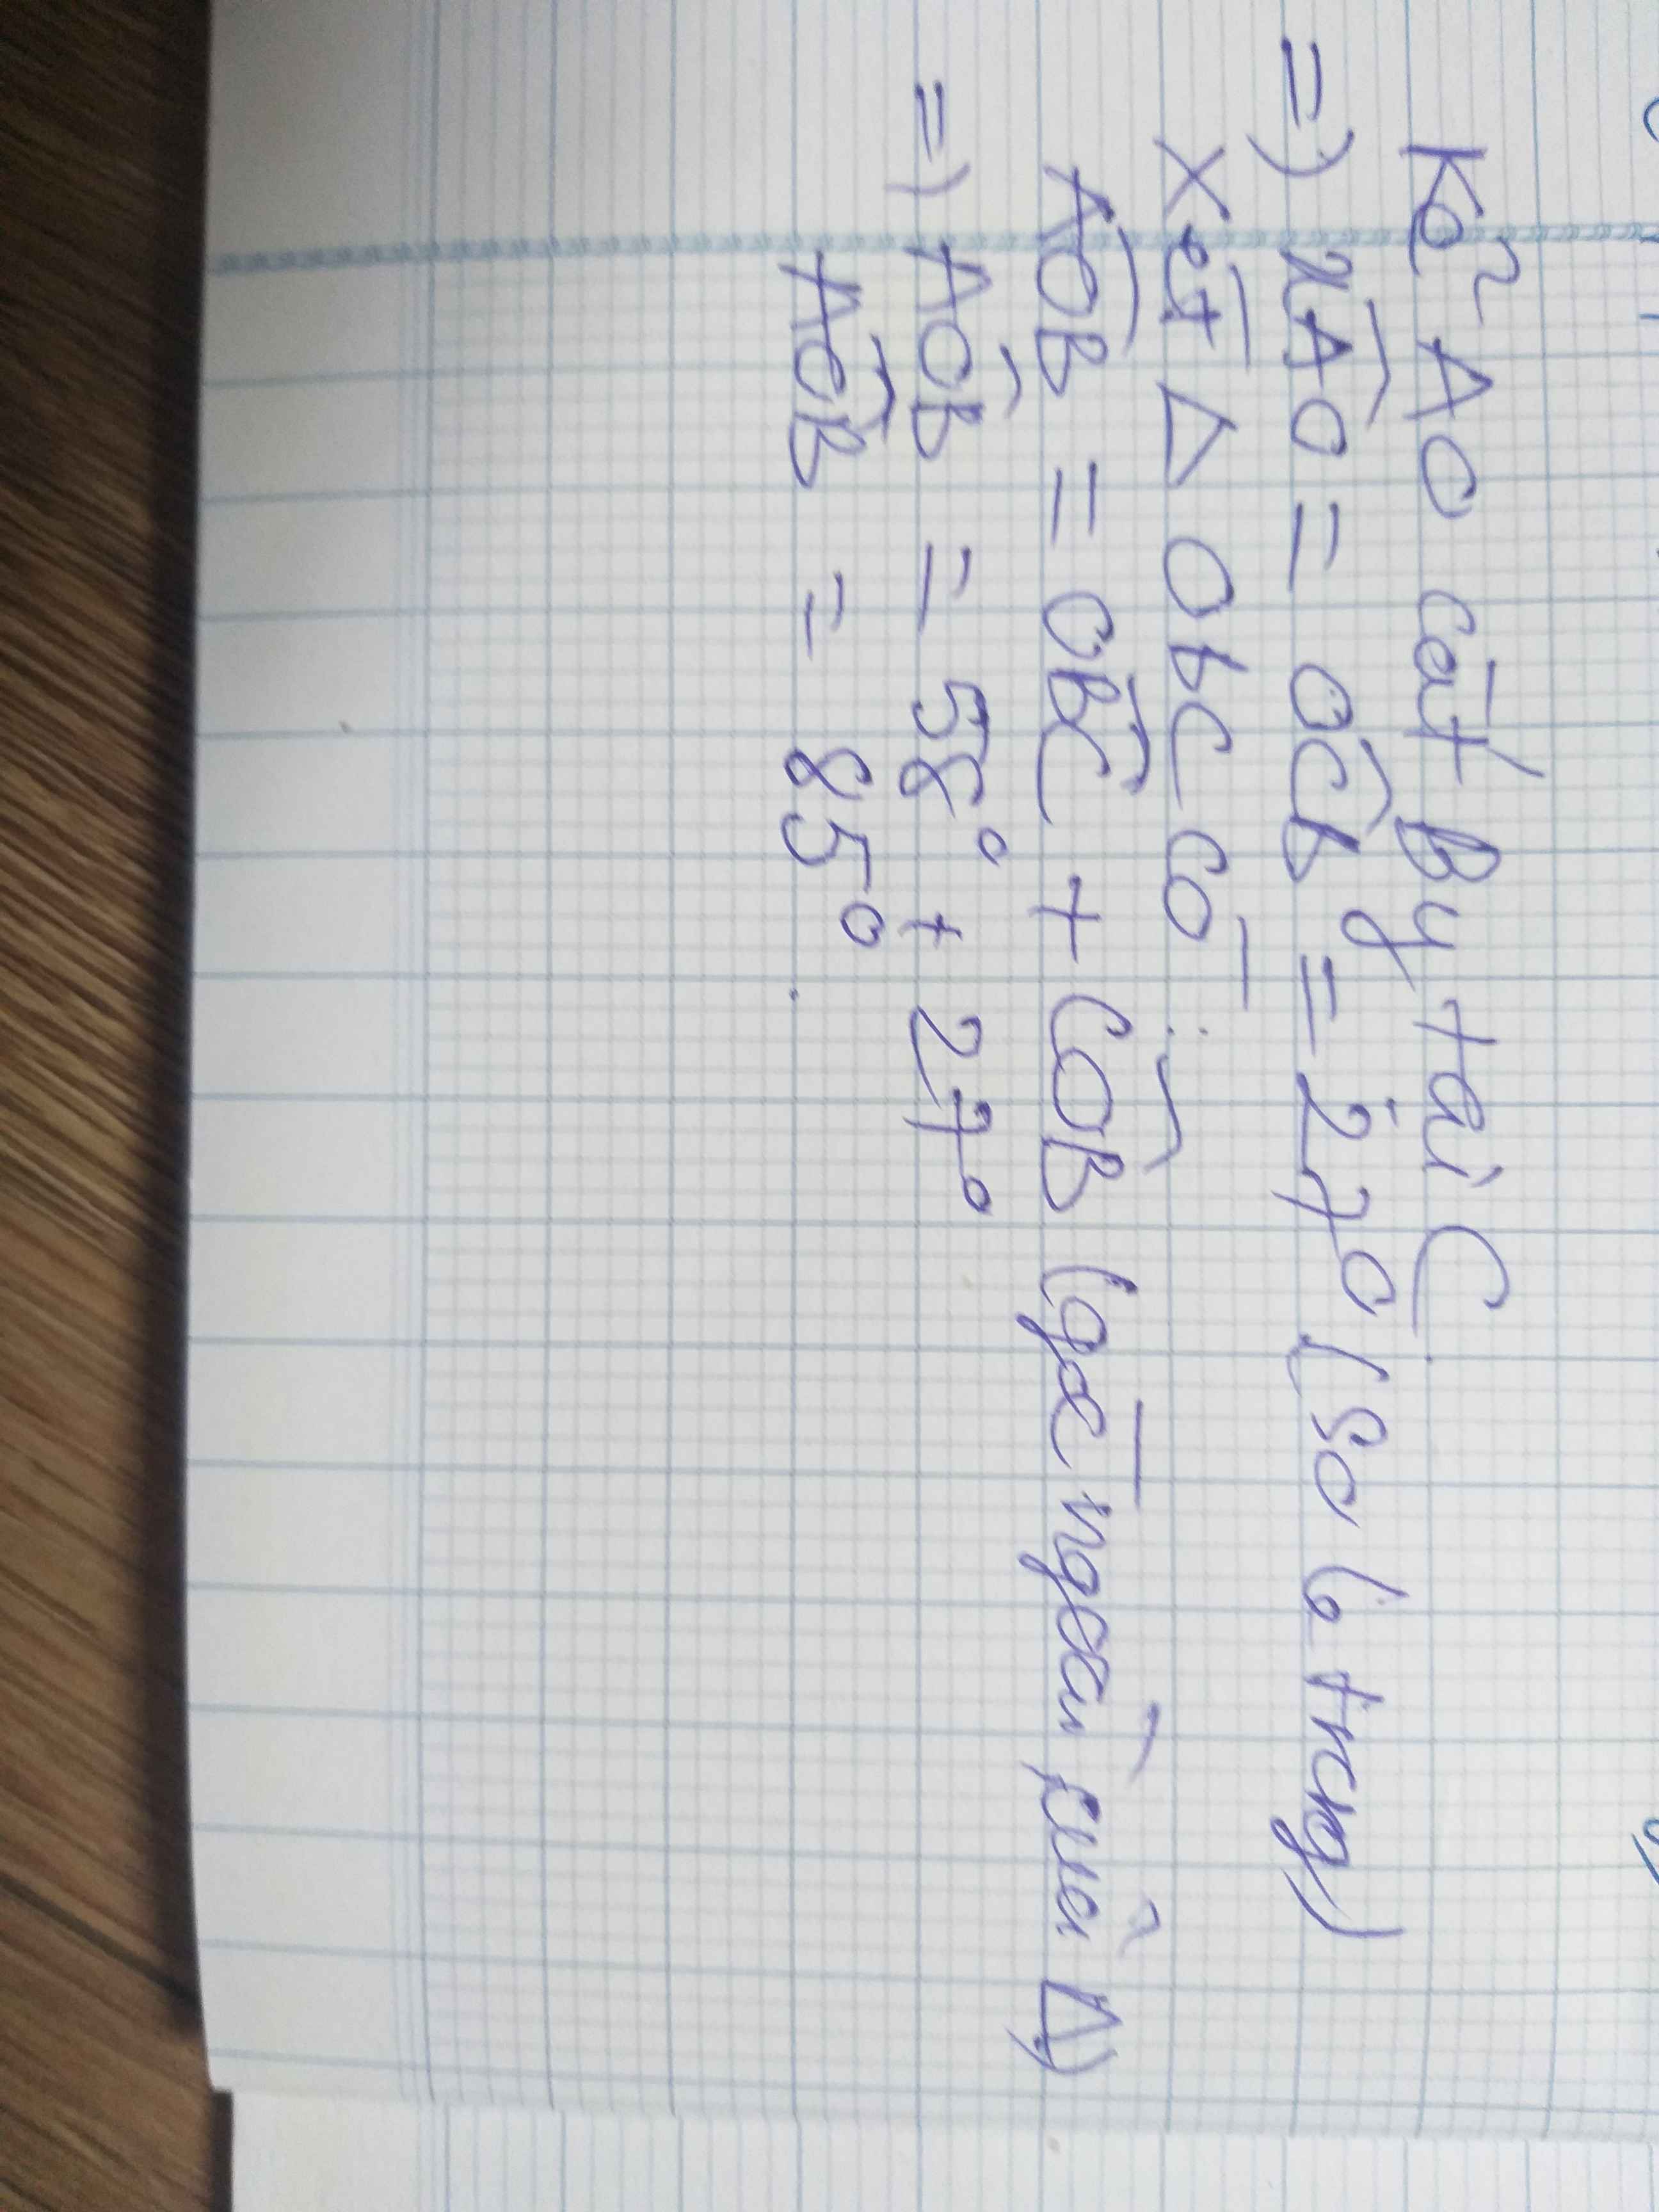 Kẻ AO cắt By tại C.
=) xAO = OCB = 27° (so le trong)
Xét Δ OBC có :
AOB = OBC + COB (góc ngoài của Δ)
=) AOB = 58° + 27°
AOB = 85°.